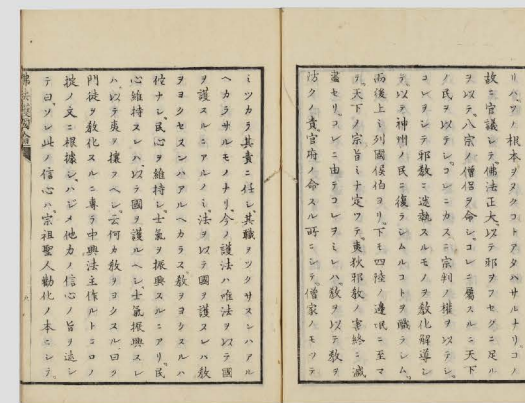 リハソノ根本ヲスクコトアタハサルナリコノ
故ニ官議シテ佛法正大以テ邪ヲフセクニ足ル
ヲ以テ八宗ノ僧侶ヲ命シコレニ屬スルニ天下
ノ民ヲ以テシコレニカスニ宗判ノ權ヲ以テシ
コレヲシテ邪教ニ迷執スルモノヲ教化解導シ
テ以テ神州ノ民ニ復ラシムルコトヲ職テシム
而後上ミ列國侯伯ヨリ下モ四陸ノ邊氓ニ至マ
テ天下ノ宗旨ミナ定フテ夷狄邪教ノ害終ニ滅
盡セリコレニ由テコレヲミレハ教ヲ以テ教ヲ
防クノ責官府ノ命スル所ニシテ僧家ノモツテ
ミツカラ其責ニ任シ其職ヲツクサスンハアル
ヘカラサルモノナリ今ノ護法ハ唯法ヲ以テ國
ヲ護スルニアルノミ法ヲ以テ國ヲ護スルハ教
ヲヨクセスンハアルヘカラス教ヲヨクスルハ
他ナシ民心ヲ維持シ士氣ヲ振興スルニアリ民
心維持スレハ以テ國ヲ護ルヘシ士氣振興スレ
ハ以テ夷ヲ攘フヘシ云何カ教ヲヨクスル曰ク
門徒ヲ教化スルニ專ラ中興法主作ルトコロノ
掟ノ文ニ根據シハジメ他力ノ信心ノ旨ヲ述シ
テ曰ソレ此ノ信心ハ宗祖聖人勸化ノ本ニシテ